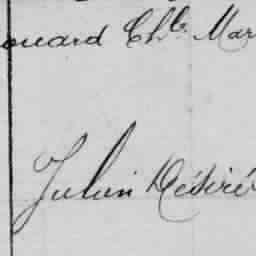 ouard Chle Mar
Julien Désiré